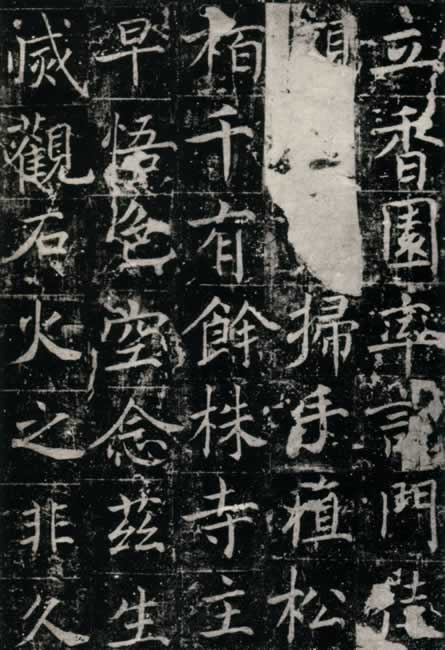 立香園率諸門徒
掃手植松
栢千有餘株寺主
早悟色空念茲生
滅觀石火之非久